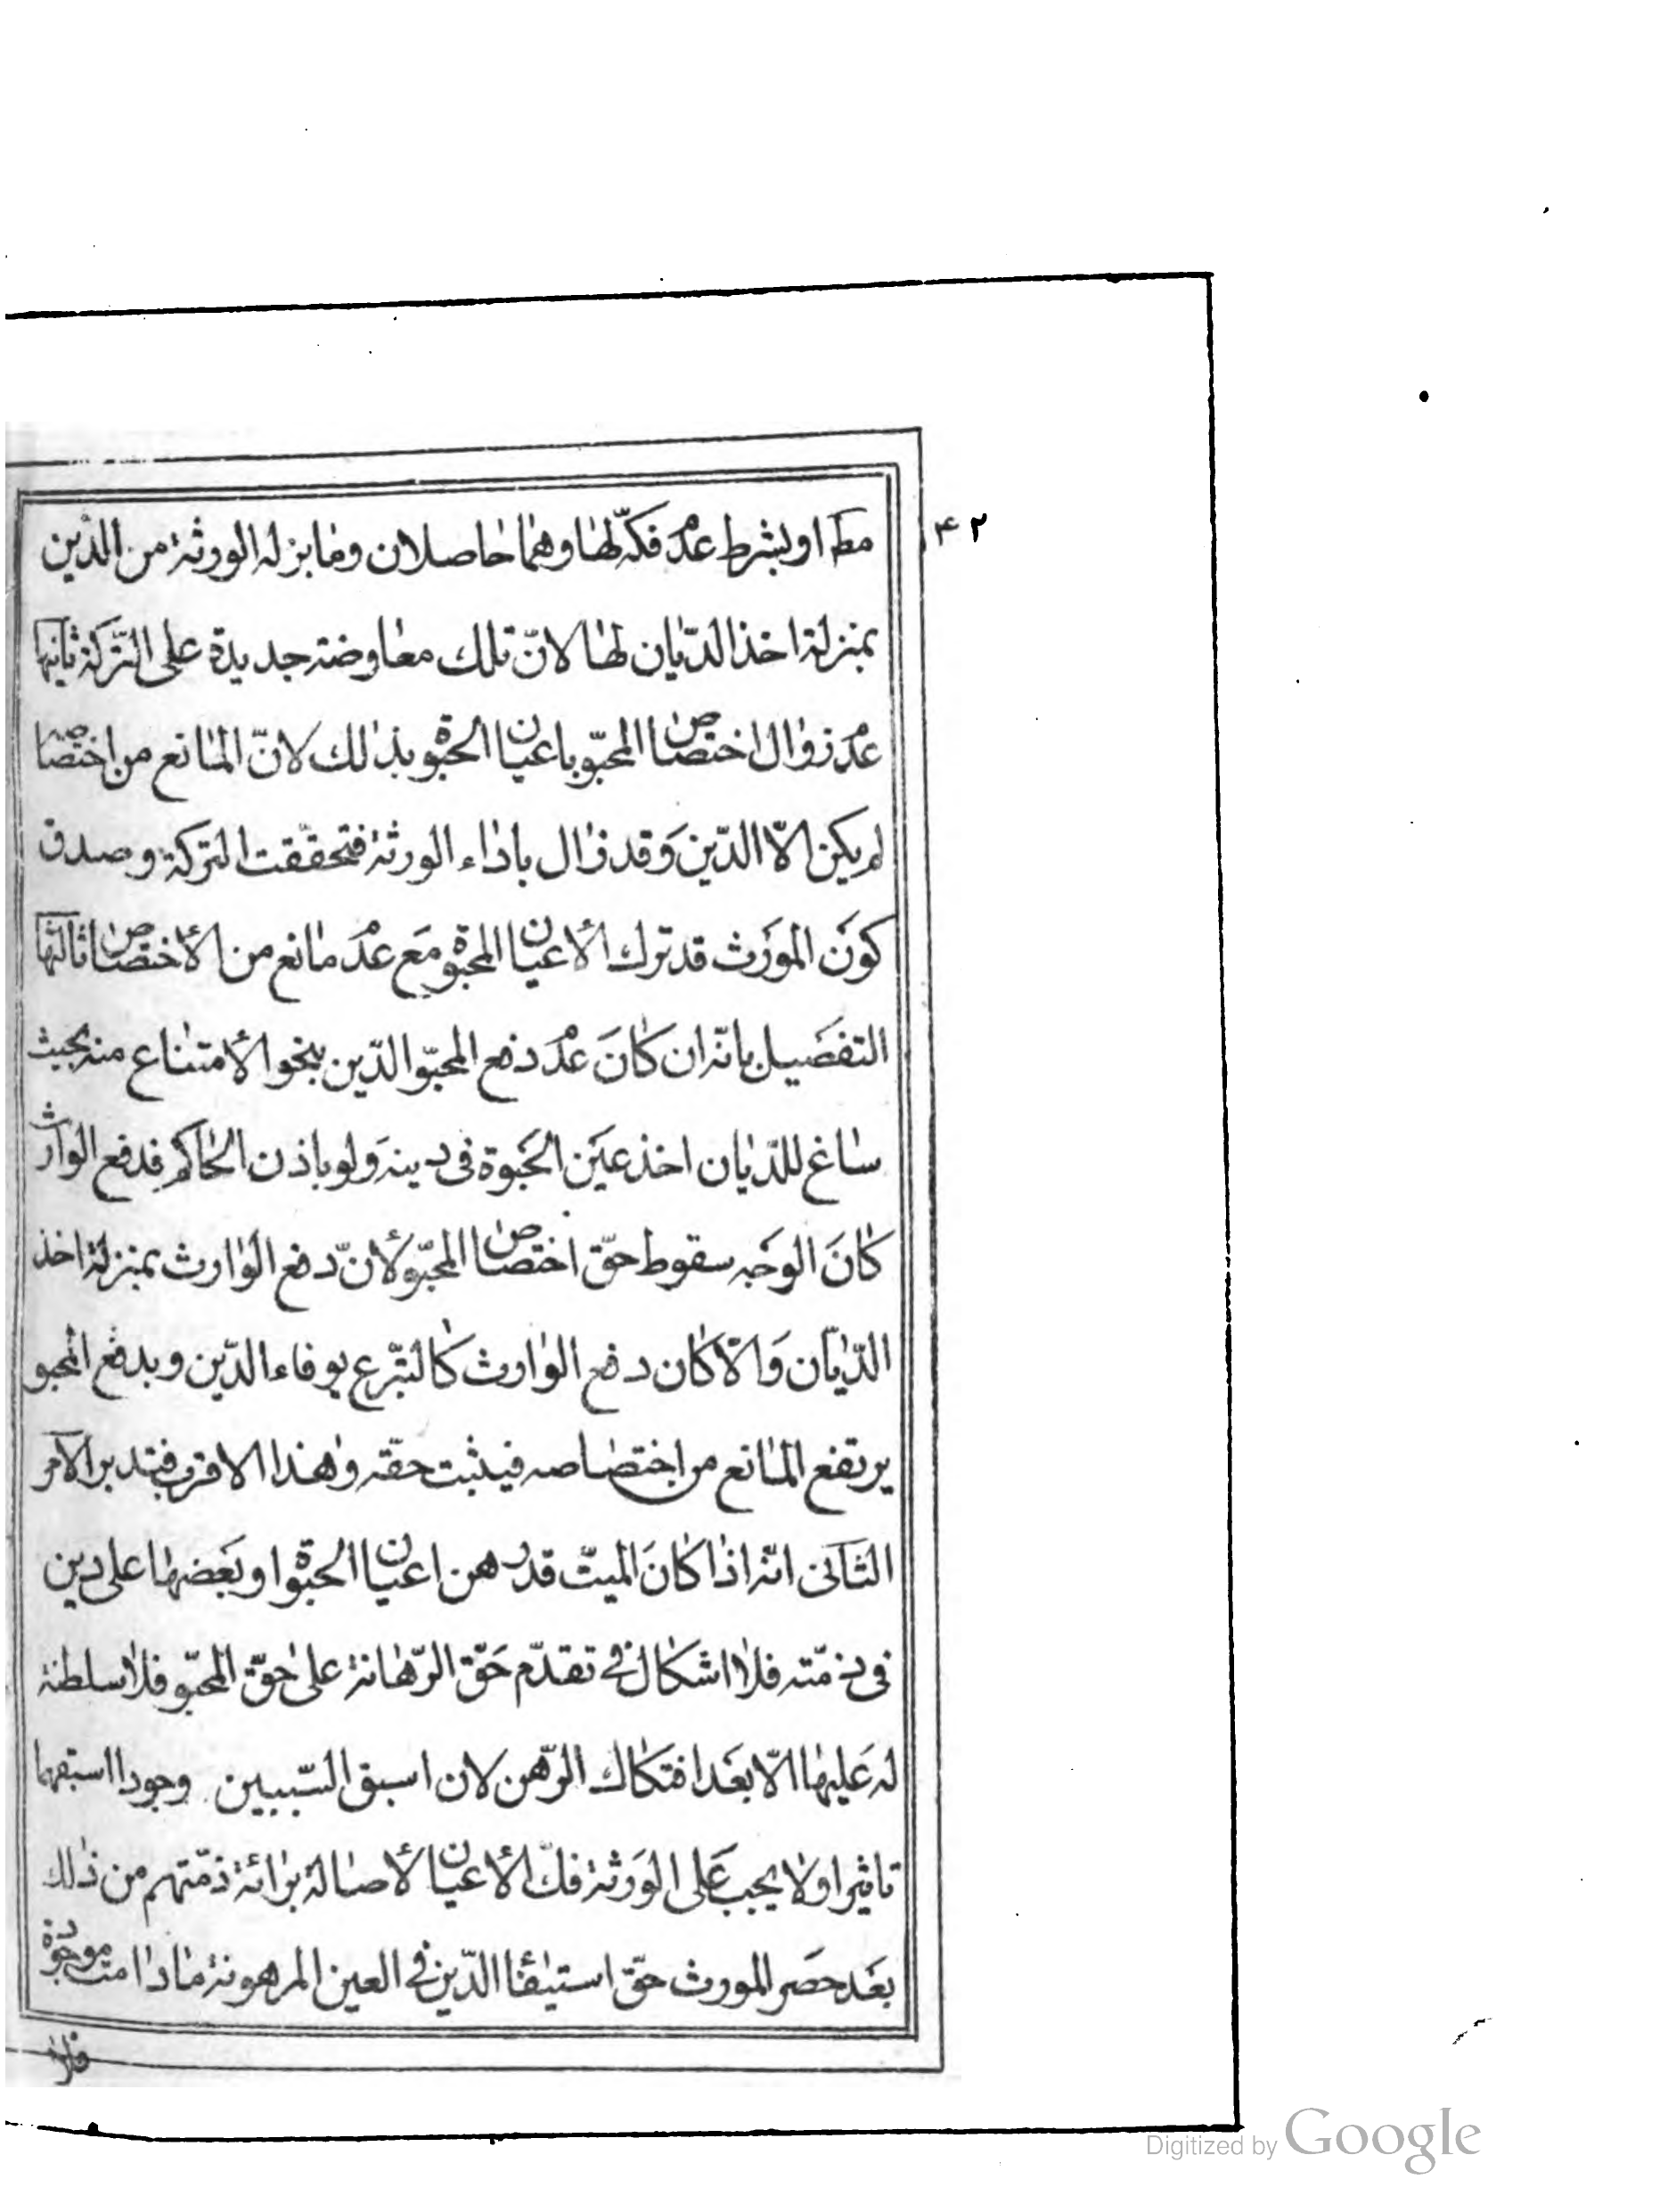 ۴۲
مط او بشرط عدم فكّه لها وهما حاصلان وما بزله الورثة من الدّين
بمنزلة اخذ الدّيان لها لانّ تلك معاوضة جديدة على التّركة ثانيها
عدم زوال اختصاص المحبّو باعيان الحبوة بذلك لانّ المانع من اختصاصه
لم يكن الّا الدّين وَقد زال باداء الورثة فتحقّقت التركة وصدق
كون المورّث قد ترك الأعيان المحبوة مع عدم مانع من الأختصاص ثالثها
التفصيل بانّه ان كان عدم دفع المحبّو الدّين بنحو الأمتناع منه بحيث
ساغ للدّيان اخذ عين الحبوة فى دينه ولو باذن الحاكم فدفع الوارث
كان الوجه سقوط حقّ اختصاص المحبّو لأنّ دفع الوارث بمنزلة اخذ
الدّيّان وَالّا كان دفع الوارث كالتبّرع بوفاء الدّين وبدفع المحبو
يرتفع المانع من اختصاصه فيثبت حقّه وهذا الاقرب فتدبر الأمر
الثانى انّه اذا كان الميّت قد رهن اعيان الحبوة او بعضها على دين
فى ذمّته فلا اشكال فى تقدّم حَقّ الرّهانة على حقّ المحبّو فلا سلطنة
له عليها الّا بعد افتكاك الرّهن لان اسبق السّببين وجودا اسبقهما
تاثيرا ولا يجب على الورثة فكّ الأعيان لأصالة برائة ذمّتهم من ذلك
بعد حصر المورث حقّ استيفاء الدّين فى العين المرهونة ما دامت موجودة
فلا
Digitized by Google